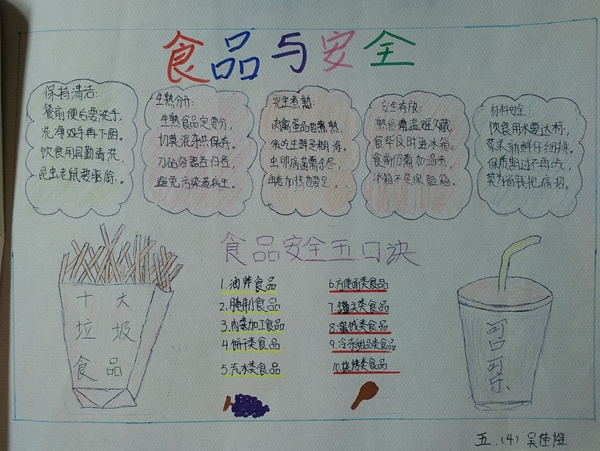 食品与安全
保持清洁:
餐前便后要洗手,
洗净双手再下厨。
饮食用具勤清洗,
昆虫老鼠要驱除。
生熟分开:
生熟食品定要分,
切莫混杂共保存。
刀砧容器各归各,
避免污染惹病生。
完全煮熟:
肉禽蛋品要煮熟,
虫卵病菌需杀尽,
安全存放:
熟食需温短收藏,
食毕及时进冰箱。
食前仍需加温煮,
冰箱不是保险箱。
材料安全:
饮食用水要达标,
菜果新鲜仔细挑。
保质期过不再吃,
莫为省钱把病招。
食品安全五口决
十大
垃圾
食品
1.油炸食品
2.腌制食品
3.肉类加工食品
4.饼干类食品
5.汽水类食品
6.方便面类食品
7.罐头类食品
8.蜜饯类食品
9.冷冻甜品类食品
10.烧烤类食品
可口可乐
五.(4)